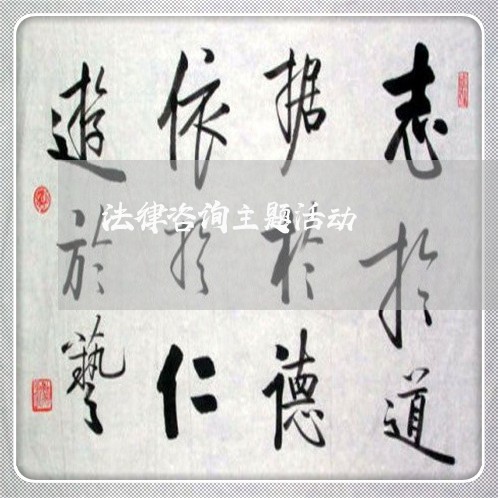 志於道
据於德
依於仁
遊於藝
法律咨询主题活动